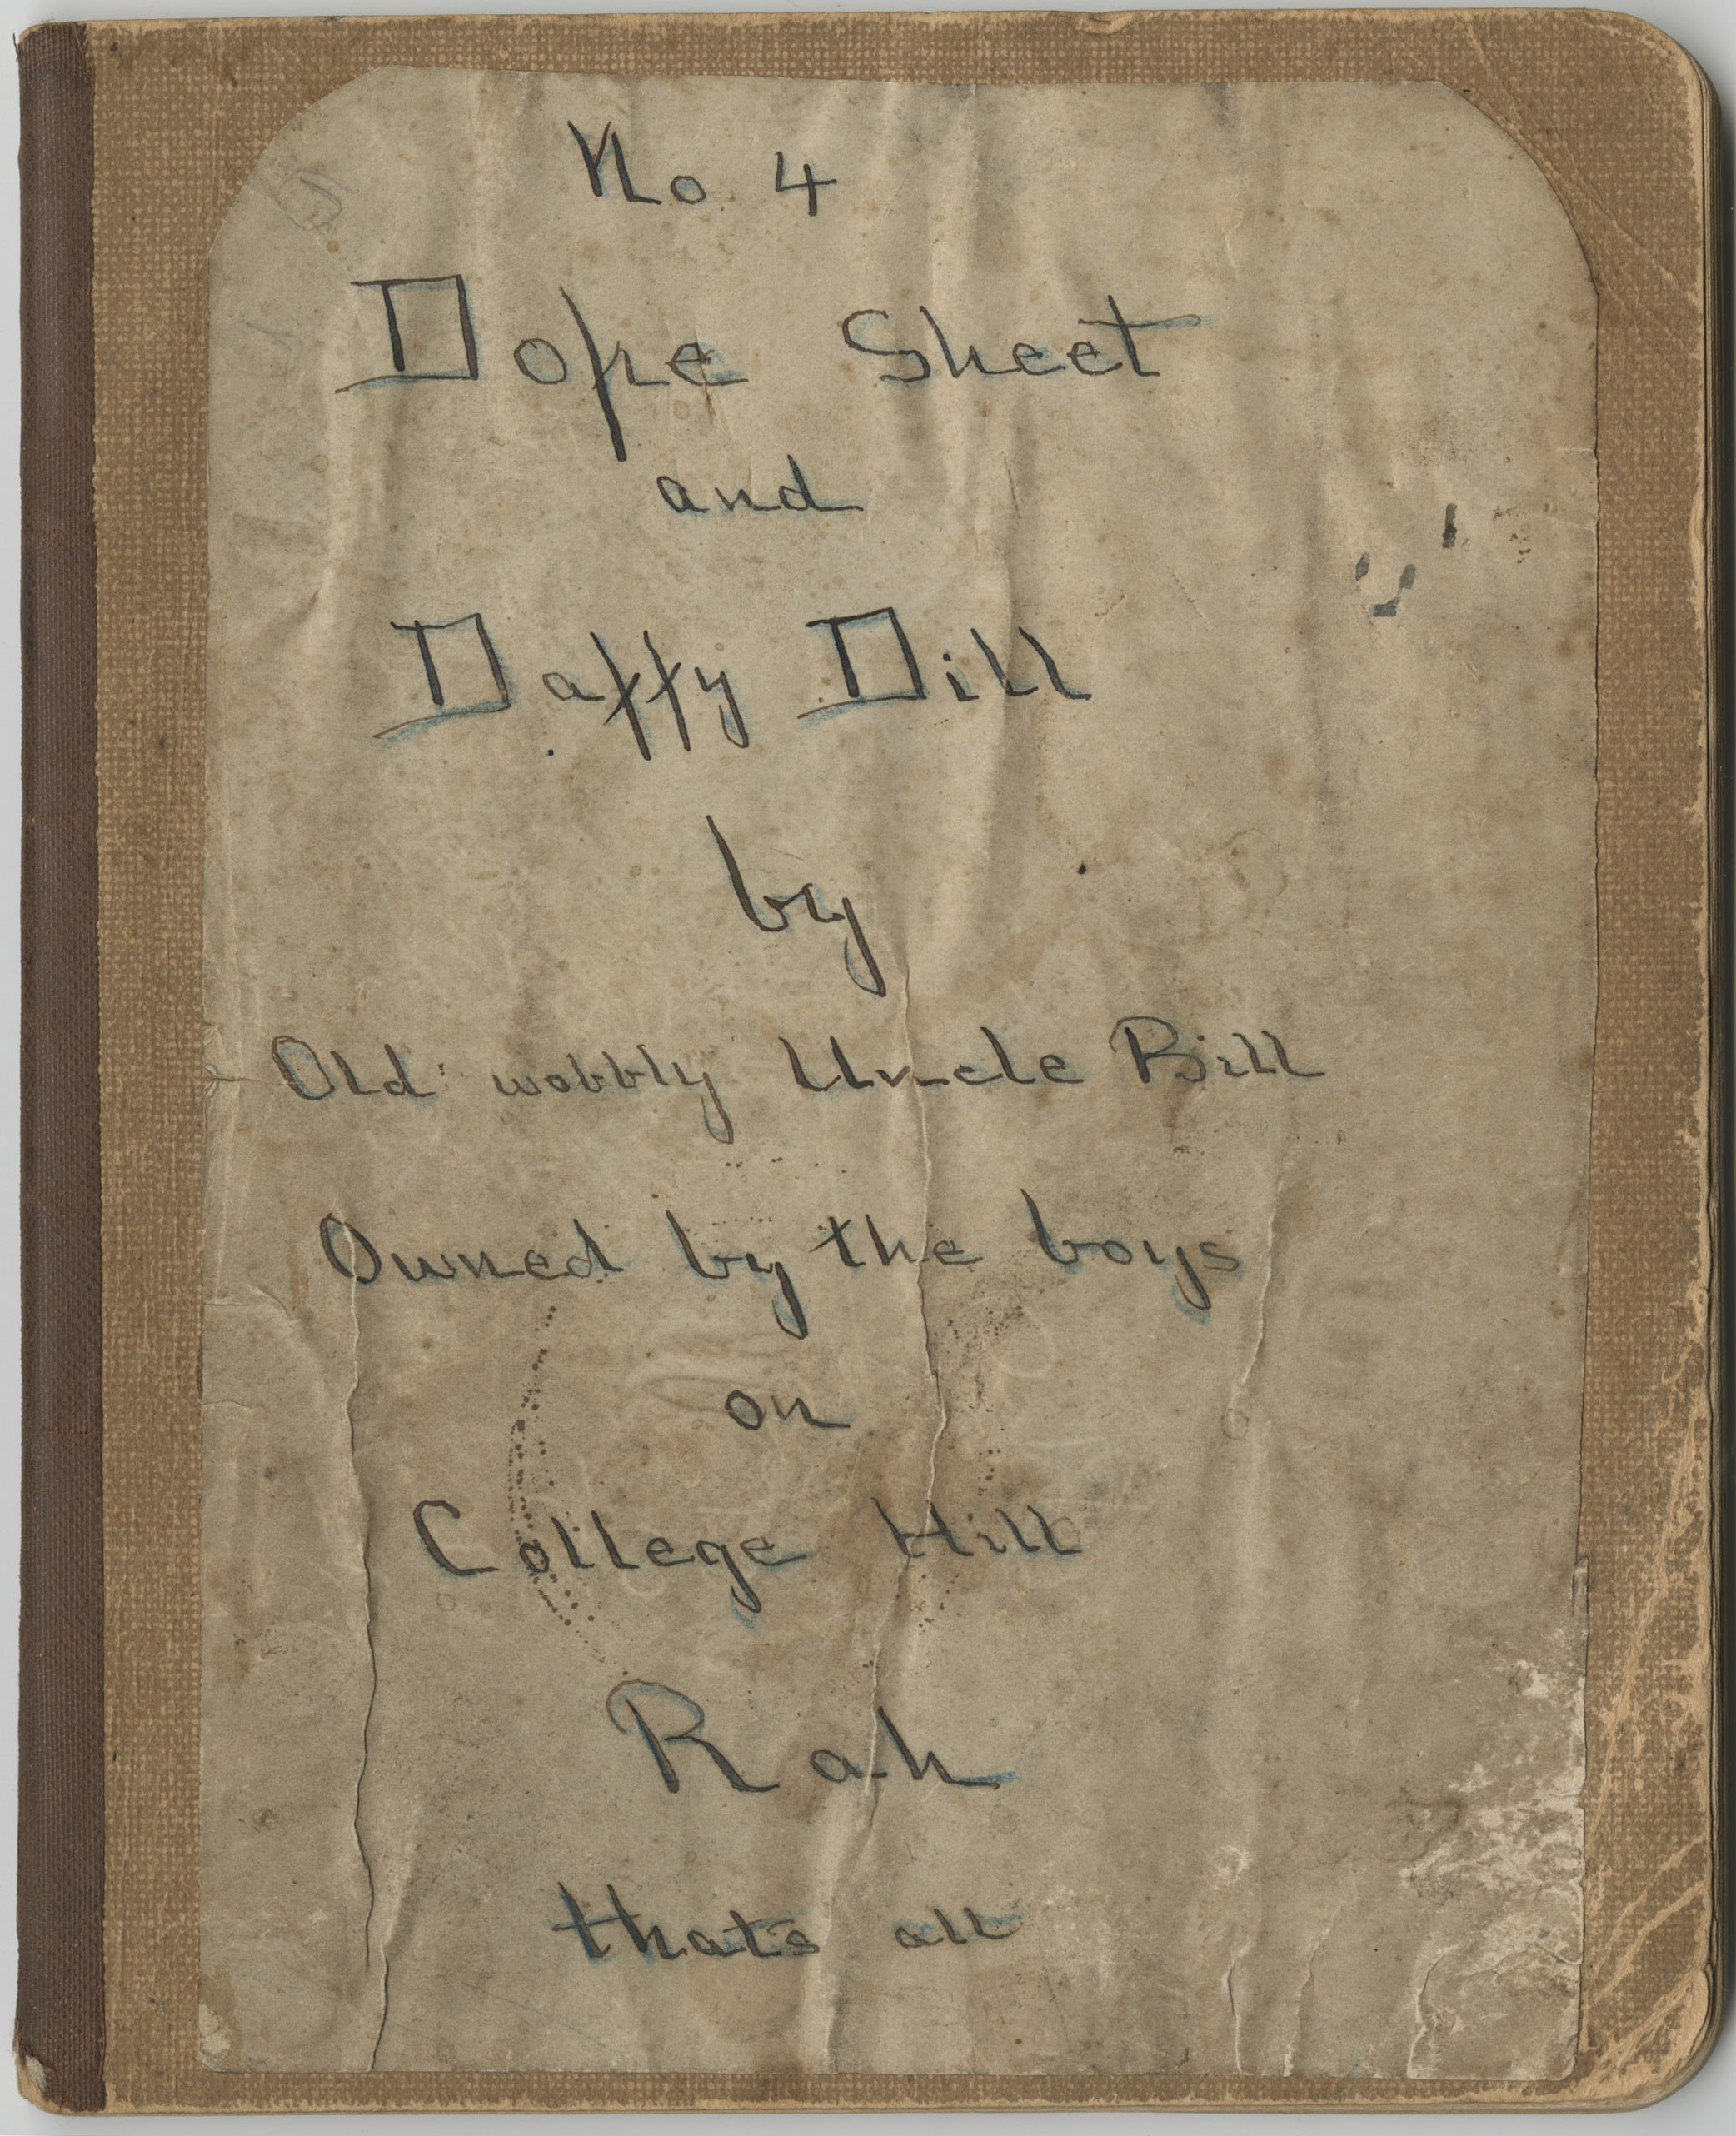 No 4
Dope Sheet
and
Daffy Dill
by
Old wobbly Uncle Bill
Owned by the boys
on
College Hill
Rah
thats all